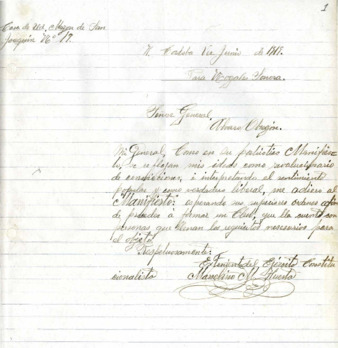 1
Casa de Ud, Mezon de San
Joaquin Nº 17.
H. Cordoba 1º de Junio de 1919.
Para Nogales Sonora.
Señor General.
Alvaro Obregón.
Mi General, Como en su patriotico Manifies-
to, se reflejan mis ideas como revolucionario
de conviccion; é interpretando el sentimiento
popular y como verdadero liberal, me adiero al
Manifiesto: esperando sus superiores ordenes afin
de proceder á formar un Club, que ya cuento con
personas que llenan los requicitos necesarios para
el objeto.
Respetuosamente:
El Teniente del Ejercito Constitu
cionalista
Marcelino M. Huerta